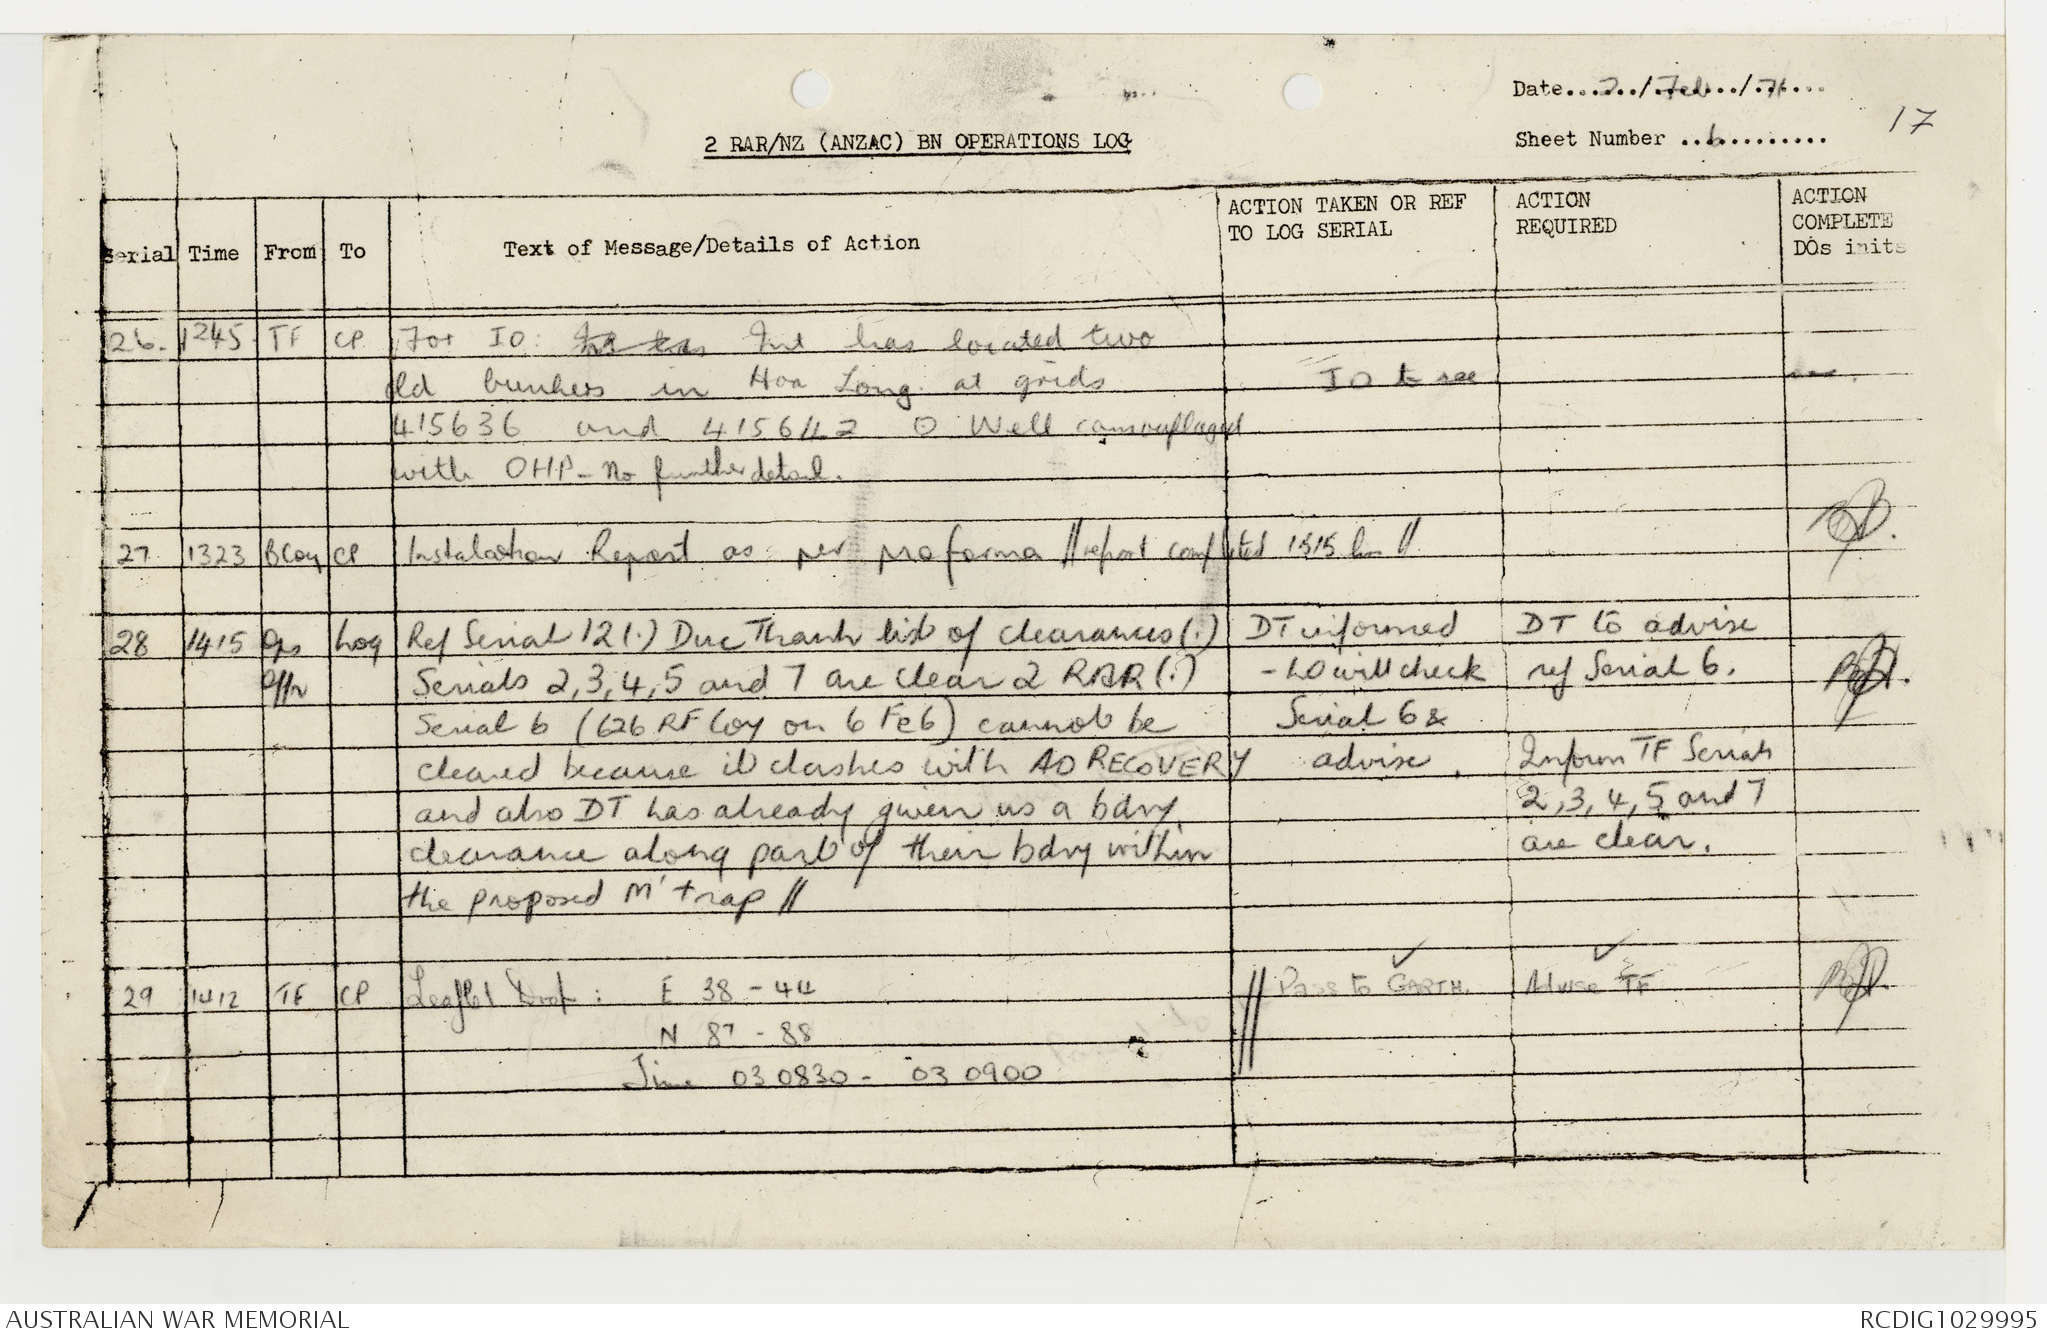 Date...2.../...Feb.../...71...
17
Sheet Number ..6...........
2 RAR/NZ (ANZAC) BN OPERATIONS LOG
Serial Time From To Text of Message/Details of Action ACTION TAKEN OR REF TO LOG SERIAL ACTION REQUIRED ACTION COMPLETE DOs inits
26. 1245 TF CP For IO: Int has located two
old bunkers in Hoa Long at grids IO to see
415636 and 415642 Well camouflaged
with OHP - No further detail.
27 1323 BCoy CP Instalation Report as per proforma // report completed 1515 hrs //
28 1415 Ops Log Ref Serial 12 (.) Duc Thanh list of clearances (.) DT informed DT to advise
Offr Serials 2, 3, 4, 5 and 7 are clear 2 RAR (.) - LO will check ref Serial 6.
Serial 6 (626 RF Coy on 6 Feb) cannot be Serial 6 &
cleared because it clashes with AO RECOVERY advise. Inform TF Serials
and also DT has already given us a bdry 2, 3, 4, 5 and 7
clearance along part of their bdry within are clear.
the proposed M' trap //
29 1412 TF CP Leaflet Drop: E 38 - 44 // Pass to GARTH. Advise TF
N 87 - 88
Time 03 0830 - 03 0900
AUSTRALIAN WAR MEMORIAL
RCDIG1029995